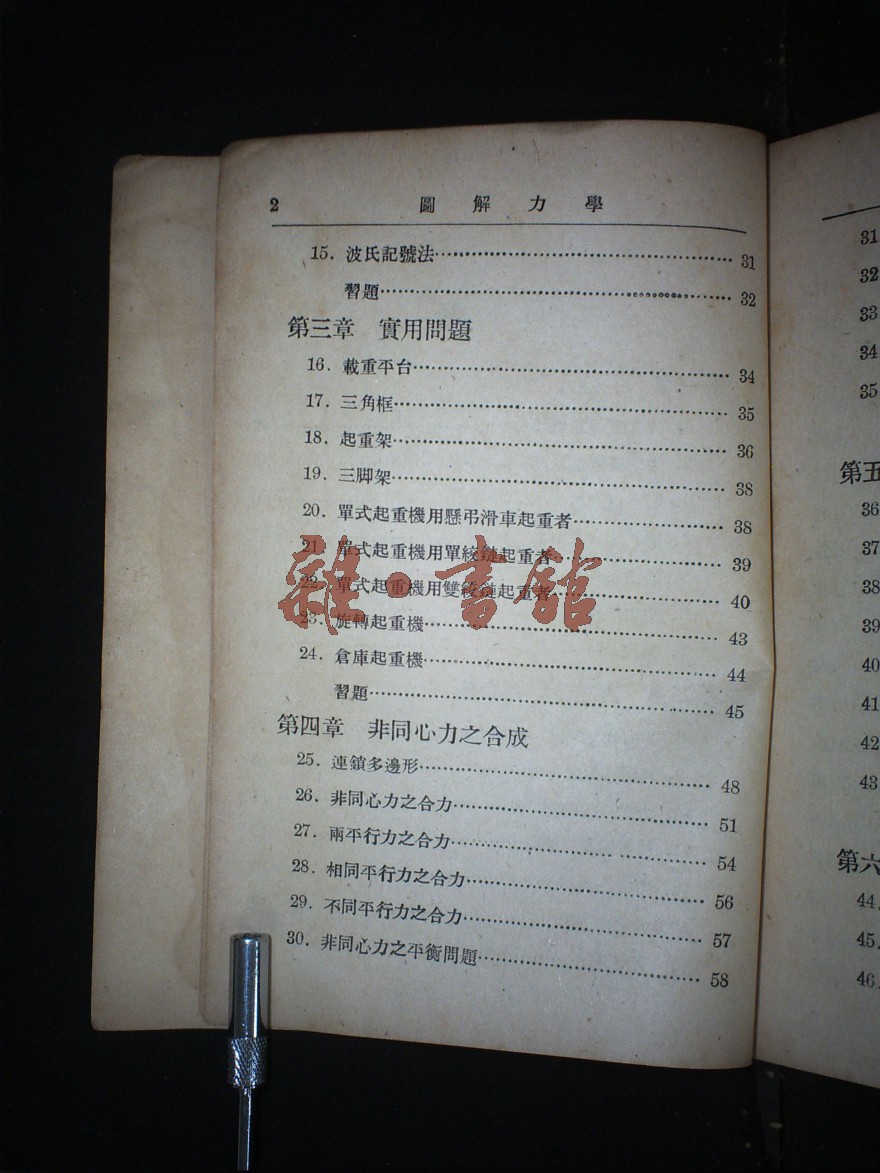 2 圖解力學
15. 波氏記號法 31
習題 32
第三章 實用問題
16. 載重平台 34
17. 三角框 35
18. 起重架 36
19. 三脚架 38
20. 單式起重機用懸弔滑車起重者 38
21. 單式起重機用單絞鏈起重者 39
22. 單式起重機用雙絞鏈起重者 40
23. 旋轉起重機 43
24. 倉庫起重機 44
習題 45
第四章 非同心力之合成
25. 連鎖多邊形 48
26. 非同心力之合力 51
27. 兩平行力之合力 54
28. 相同平行力之合力 56
29. 不同平行力之合力 57
30. 非同心力之平衡問題 58
雜·書館
31
32
33
34
35
第五
36
37
38
39
40
41
42
43
第六
44.
45.
46.